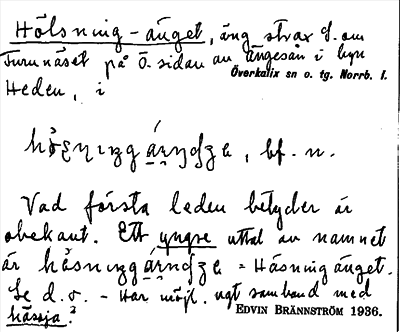 Hölsning-änget, äng strax S. om
Turunäset på Ö. sidan av Ängesån i byn
Överkalix sn o. tg. Norrb. l.
Heden, i
bf. n.
Vad första leden betyder är
obekant. Ett yngre uttal av namnet
är = Håsningänget.
Se d. o. - Har möjl. ngt samband med
hässja?
EDVIN BRÄNNSTRÖM 1936.